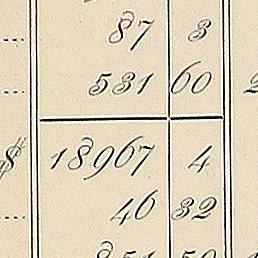 87 3
531 60
$ 18967 4
46 32
851 50